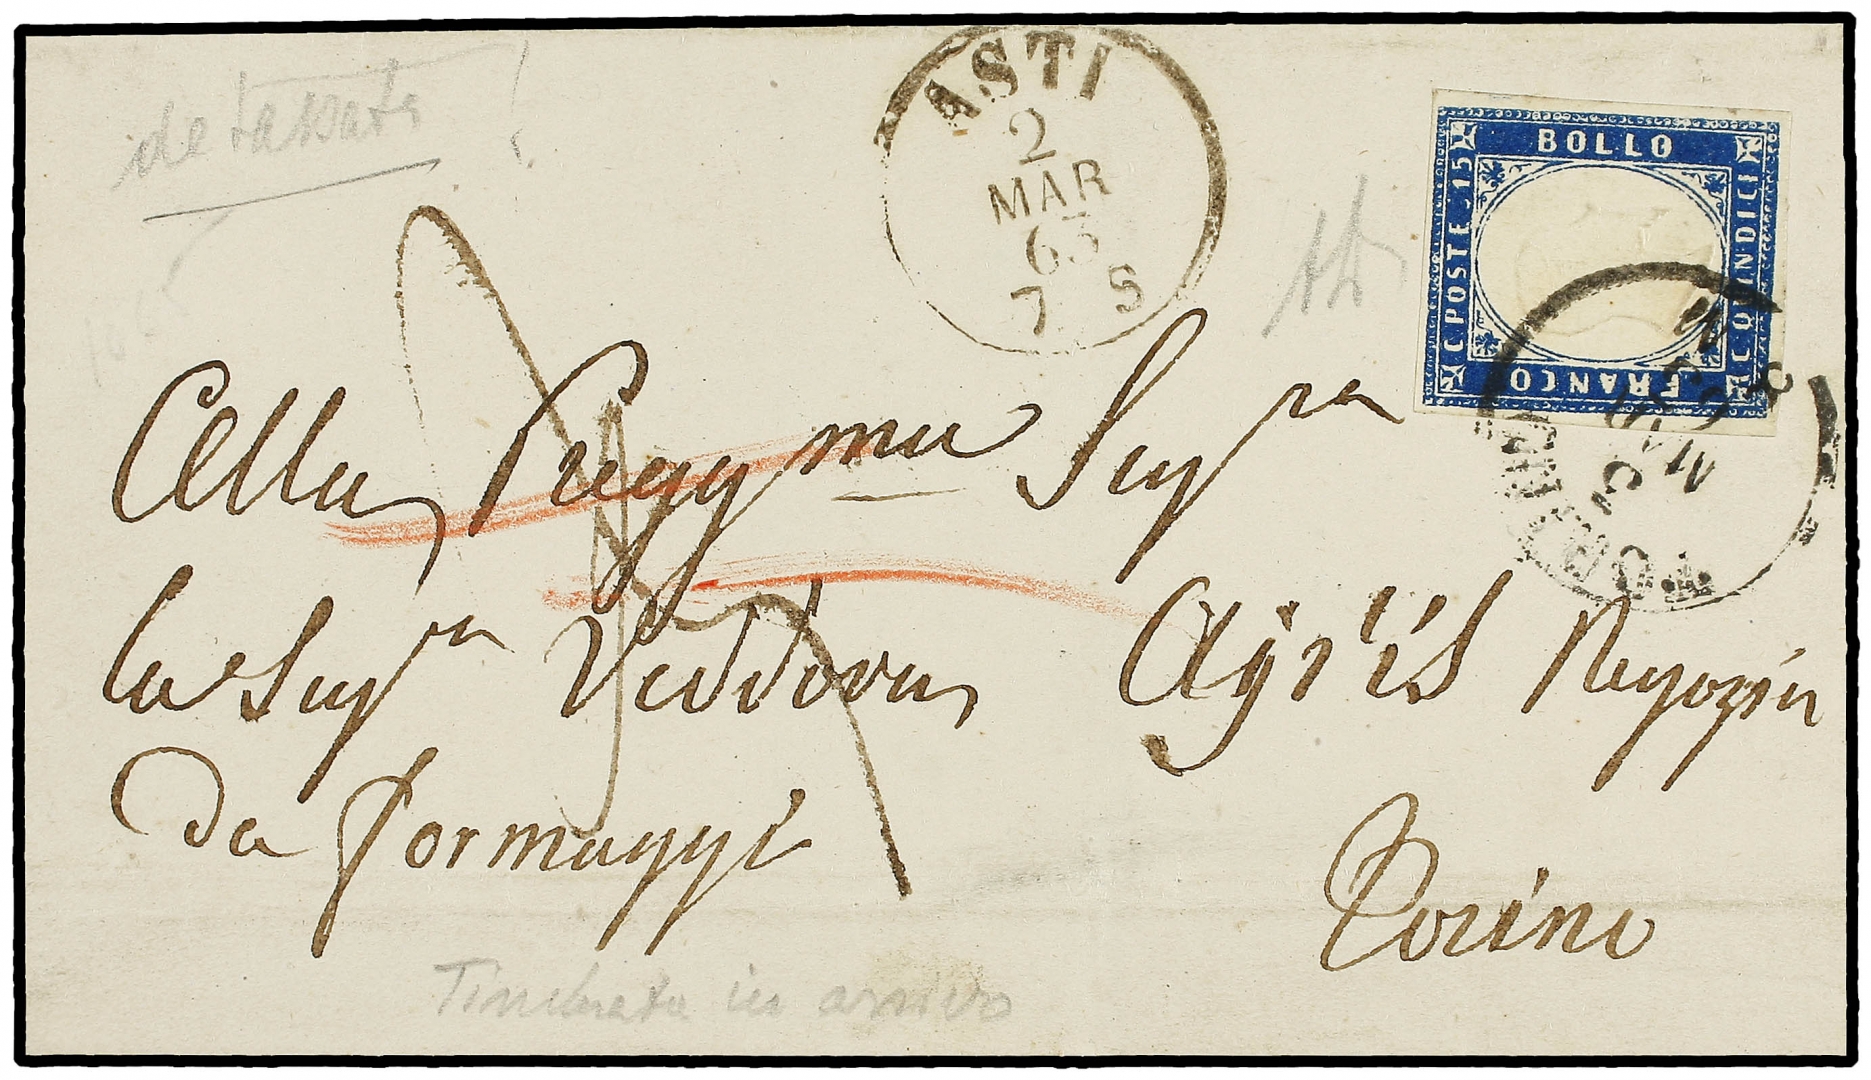 detassata
ASTI
2
MAR
63
7 S
BOLLO
C. POSTE 15
C. QUINDICI
FRANCO
TORINO
3
MAR
63
8 M
Alla Pregg ma Sig ra
la Sig ra Vedova Ayrès Negozin
da formaggi
Torino
Timbrata in arrivo